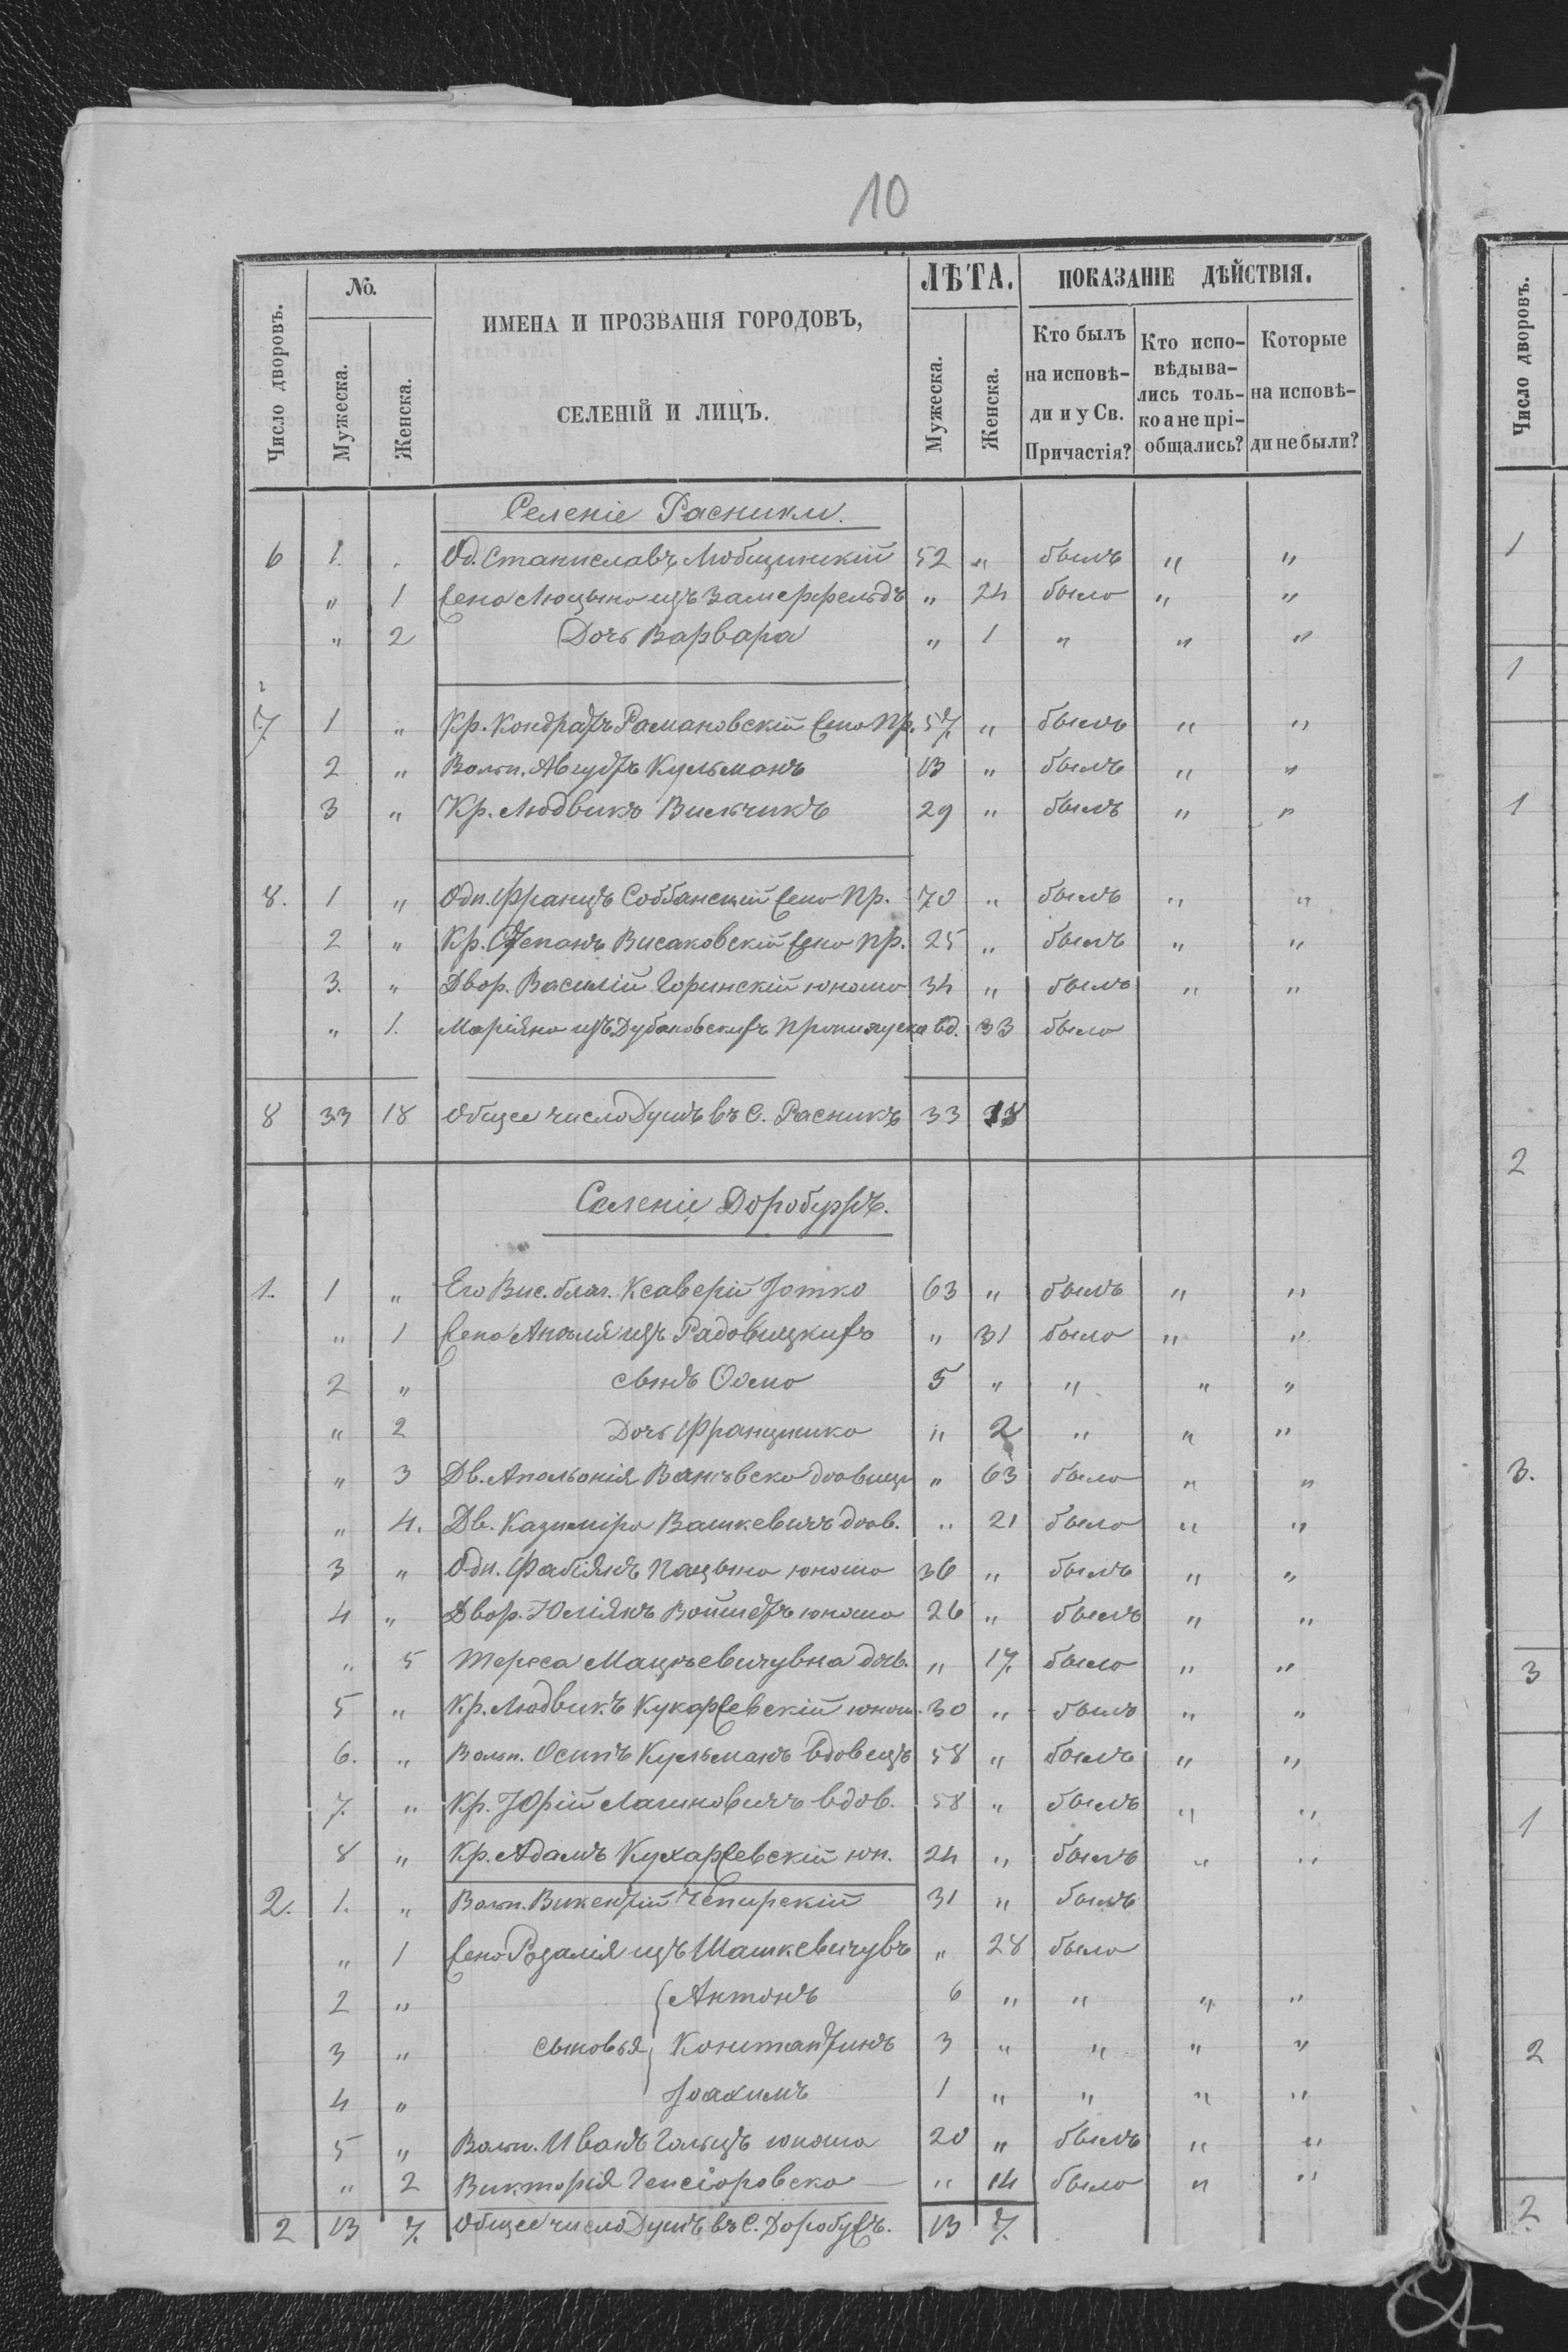 10
Число дворовъ.
№.
Мужеска.
Женска.
ИМЕНА И ПРОЗВАНІЯ ГОРОДОВЪ,
СЕЛЕНІЙ И ЛИЦЪ.
ЛѢТА.
Мужеска.
Женска.
ПОКАЗАНІЕ ДѢЙСТВІЯ.
Кто былъ
на исповѣ-
ди и у Св.
Причастія?
Кто испо-
вѣдыва-
лись толь-
ко а не прі-
общались?
Которые
на исповѣ-
ди не были?
Селеніе Расники.
6 1. . Од. Станиславъ Любщинскій 52 „ былъ „ „
„ 1 Жена Люцына изъ „ 24 была „ „
„ 2 Дочь Варвара „ 1 „ „ „
7 1 „ Кр. Кондратъ Рамановскій Жена Пр. 57 „ былъ „ „
2 „ Вольн. Августъ Кульманъ 13 „ былъ „ „
3 „ Кр. Людвикъ Вильчикъ 29 „ былъ „ „
8. 1 „ Одн. Францъ Собѣанскій Жена Пр. 70 „ былъ „ „
2 „ Кр. Степанъ Висаковскій Жена Пр. 25 „ былъ „ „
3. „ Двор. Василій Горинскій юноша 34 „ былъ „ „
„ 1. Маріяна изъ Дубаковскихъ вд. 33 была
8 33 18 Общее число Душъ въ С. Расникъ 33 18
Селеніе Доробужъ.
1. 1 „ Его Выс. благ. Ксаверій Іотко 63 „ былъ „ „
„ 1 Жена Анэля изъ Радовицкихъ „ 31 была „ „
2 „ сынъ Ѳома 5 „ „ „ „
„ 2 Дочь Францишка „ 2 „ „ „
„ 3 Дв. Апольонія „ 63 была „ „
„ 4. Дв. Казиміра Вашкевичъ доов. „ 21 была „ „
3 „ Одн. Фабіянъ Пацына юноша 36 „ былъ „ „
4 „ Двор. Юліянъ Войшетъ юноша 26 „ былъ „ „
„ 5 Тереса Мацкевичувна дов. „ 17. была „ „
5 „ Кр. Людвикъ Кухаржевскій юнош. 30 „ былъ „ „
6. „ Вольн. Осипъ Кульманъ вдовецъ 58 „ былъ „ „
7. „ Кр. Юрій Лагиновичъ вдов. 58 „ былъ „ „
8 „ Кр. Адамъ Кухаржевскій юн. 24 „ былъ „ „
2. 1. „ Вольн. Викентій Чепирскій 31 „ былъ
„ 1 Жена Розалія изъ Шашкевичувъ „ 28 была
2 „ Антонъ 6 „ „ „ „
3 „ Сыновья Константинъ 3 „ „ „ „
4 „ Іоахимъ 1 „ „ „ „
5 „ Вольн. Иванъ Гольцъ юноша 20 „ былъ „ „
„ 2 Викторія Генсіоровска „ 14 была „ „
2 13 7. Общее число Душъ въ С. Доробужъ. 13 7.
Число дворовъ.
1
1
1
2
3.
3
1
2
2